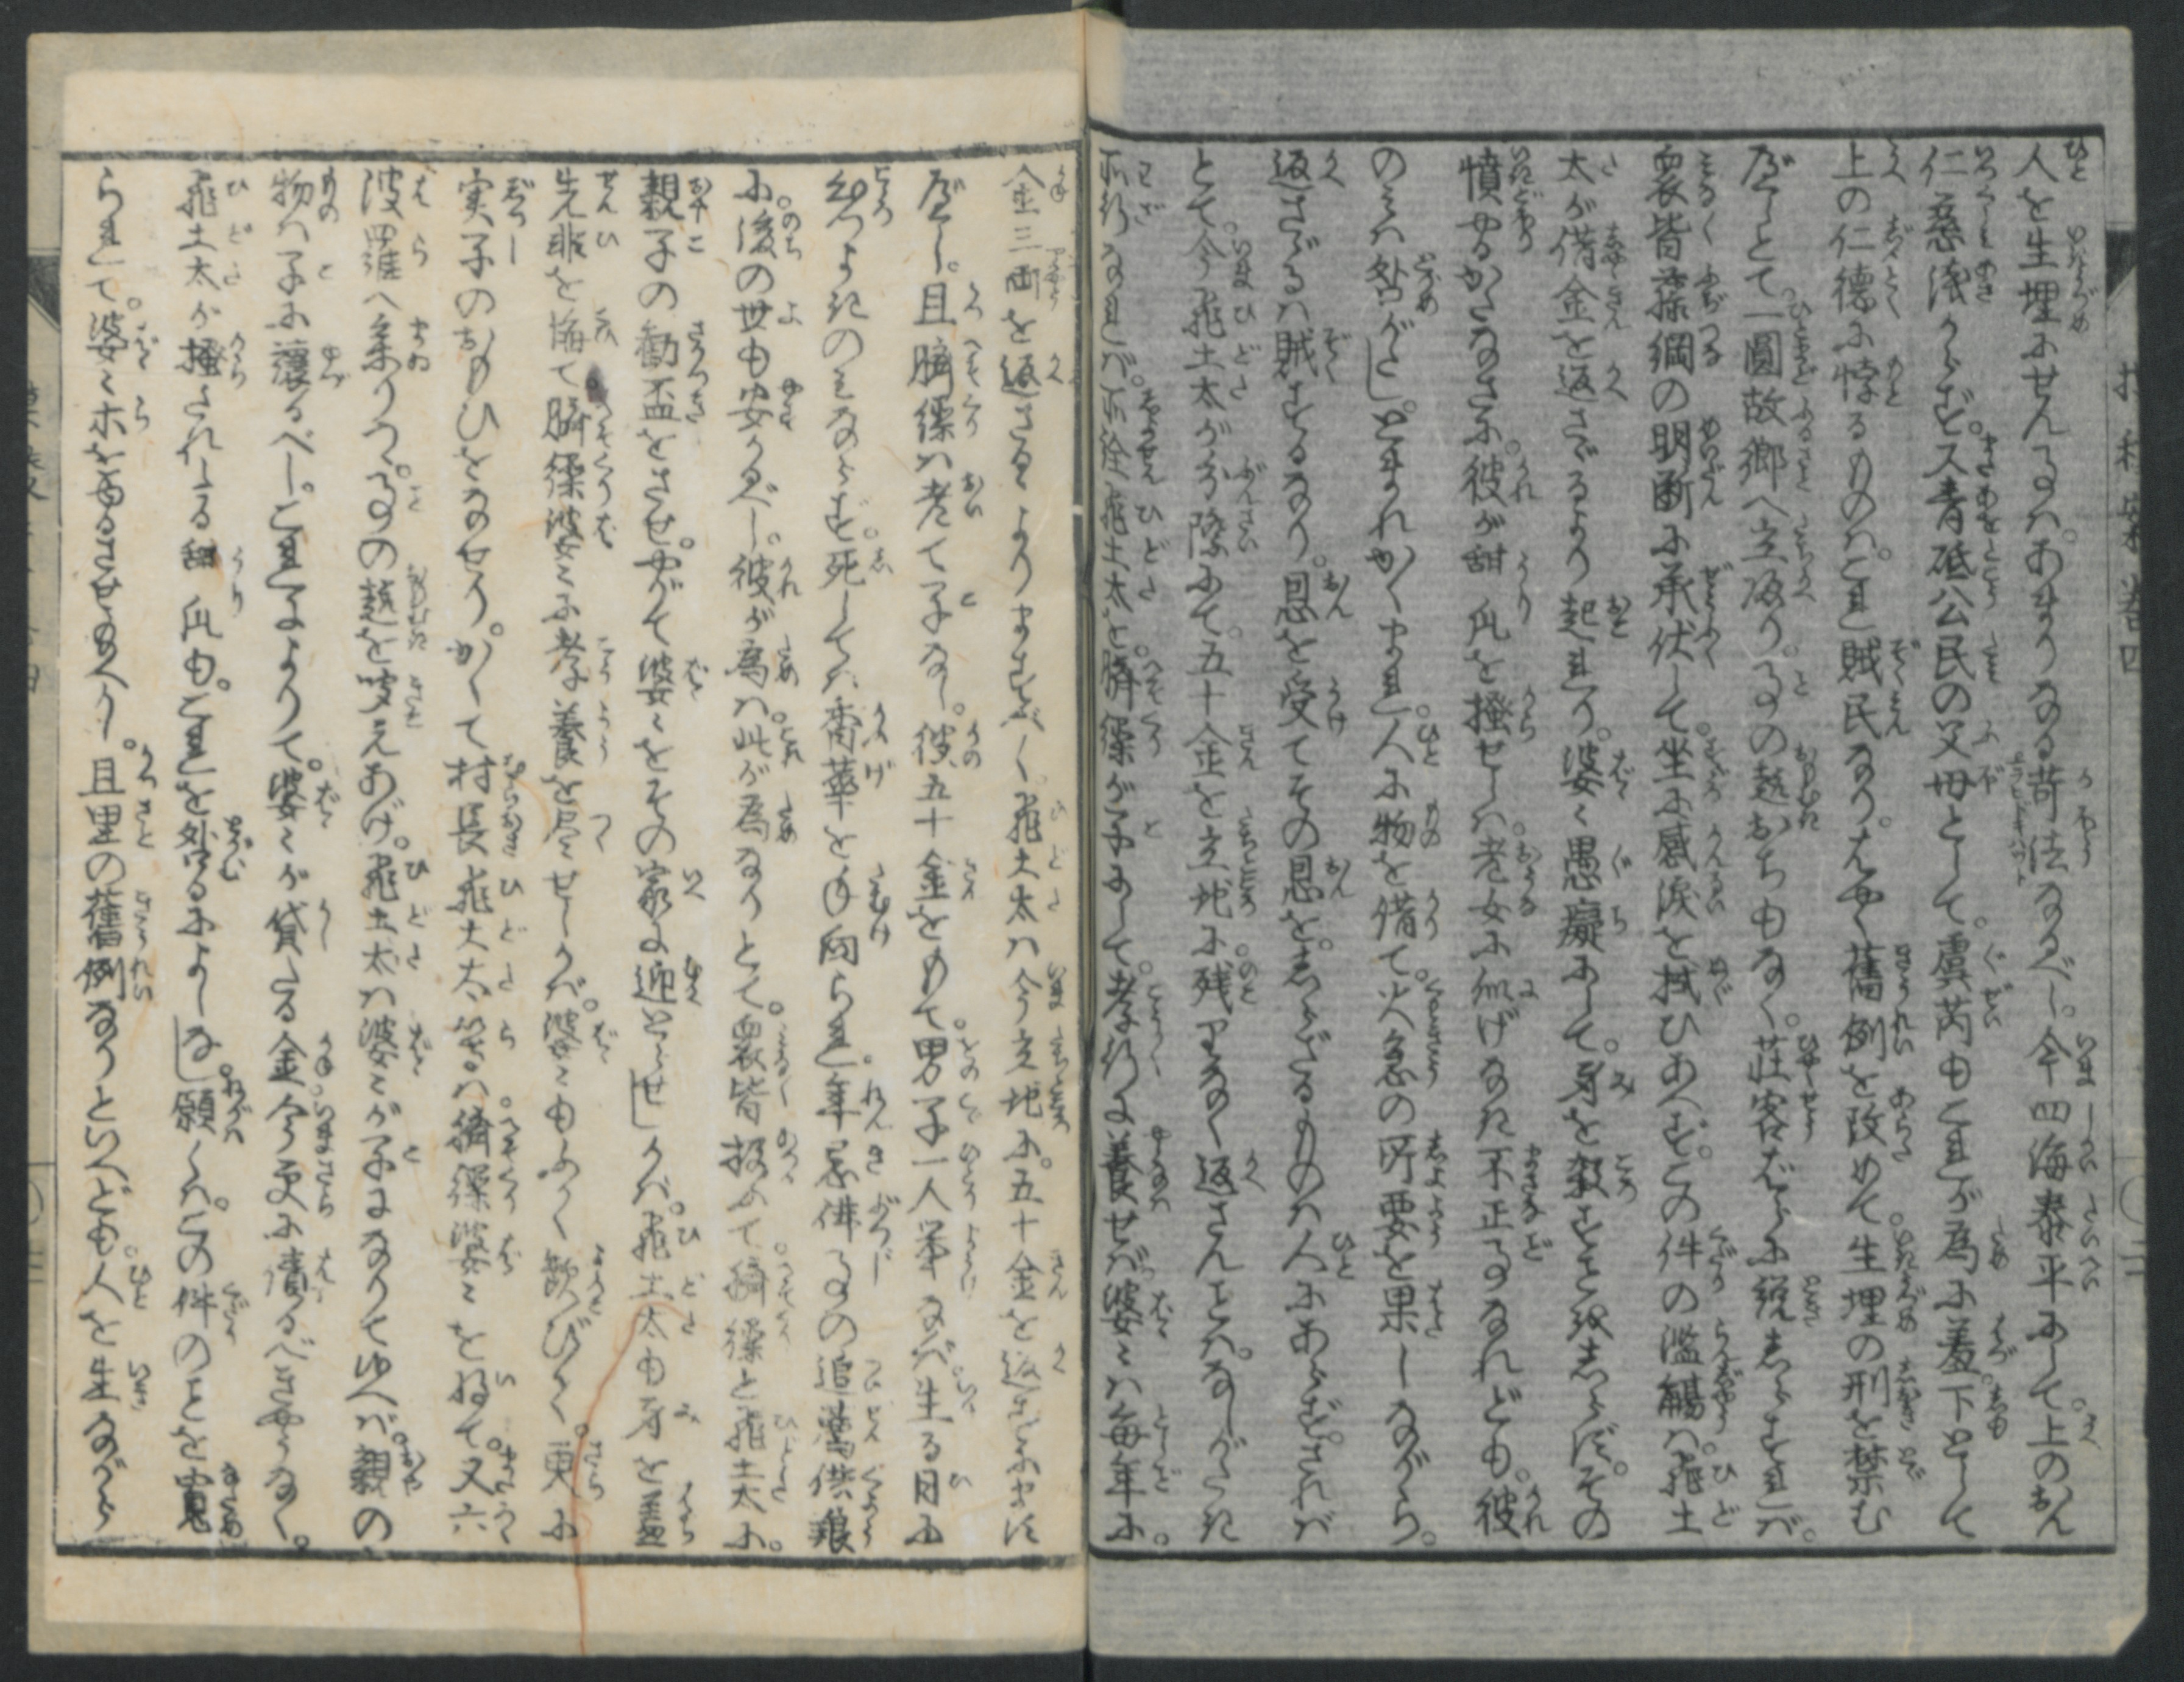 人を生埋にせん事は。あまりなる苛法なるべし。今四海泰平にして。上のおん
仁慈浅からず。又青砥公民の父母として。虞芮もこれが為に羞。下として
上の仁徳に悖るものは。これ賊民なり。はやく舊例を改めて。生埋の刑を禁む
べしとて。一圓故郷へ立かへり。事の趣おちもなく。荘客ばらに説しらすれば。
衆皆藤綱の明断に承伏して。坐に感涙を拭ひあへず。この件の濫觴は。飛土
太が借金を返さゞるより起れり。婆々愚癡にして。身を殺すことをしらず。その
憤やるかたなさに。彼が甜瓜を掻せしは。老女に似げなき不正事なれども。彼
のみは咎がたし。とまれかくまれ。人に物を借て。火急の所要を果しながら。
返さゞるは賊するなり。恩を受てその恩を。しらざるものは人にあらず。されば
とて。今飛土太が分際にて。五十金を立地に。残りなく返さんことは。なしがたき
所行なれば。所詮飛土太を。臍繰が子にして。孝行に養せば。婆々は毎年に。
金三両を返さるゝよりますべく。飛土太は今立地に。五十金を返すにまし
べし。且臍繰は老て子なし。彼五十金をもて。男子一人挙なば。生る日に
幼よきのみならず。死しては香華を手向られ。年忌佛事の追薦供養
に。後の世も安かるべし。彼が為は。此が為なりとて。衆皆扱ふて。臍繰と飛土太に。
親子の勧盃をさせ。やがて婆々をその家に迎とらせしかば。飛土太も身を羞
先非を悔て。臍繰婆々に孝養を尽せしかば。婆々もふかく歓びて。更に
実子のおもひをなせり。かくて村長飛土太等は。臍繰婆々を将て。又六
波羅へ参りつ。事の趣を聞えあげ。飛土太は婆々が子になりてゆへば。親の
物は子に譲るべし。これによりて。婆々が貸たる金。今更に債るべきやうなく。
飛土太が掻されたる甜瓜も。これを咎るによしな。し願くは。この件のことを寛
られて。婆々ホをゆるさせ給へかし。且里の舊例なりといへども。人を生ながら